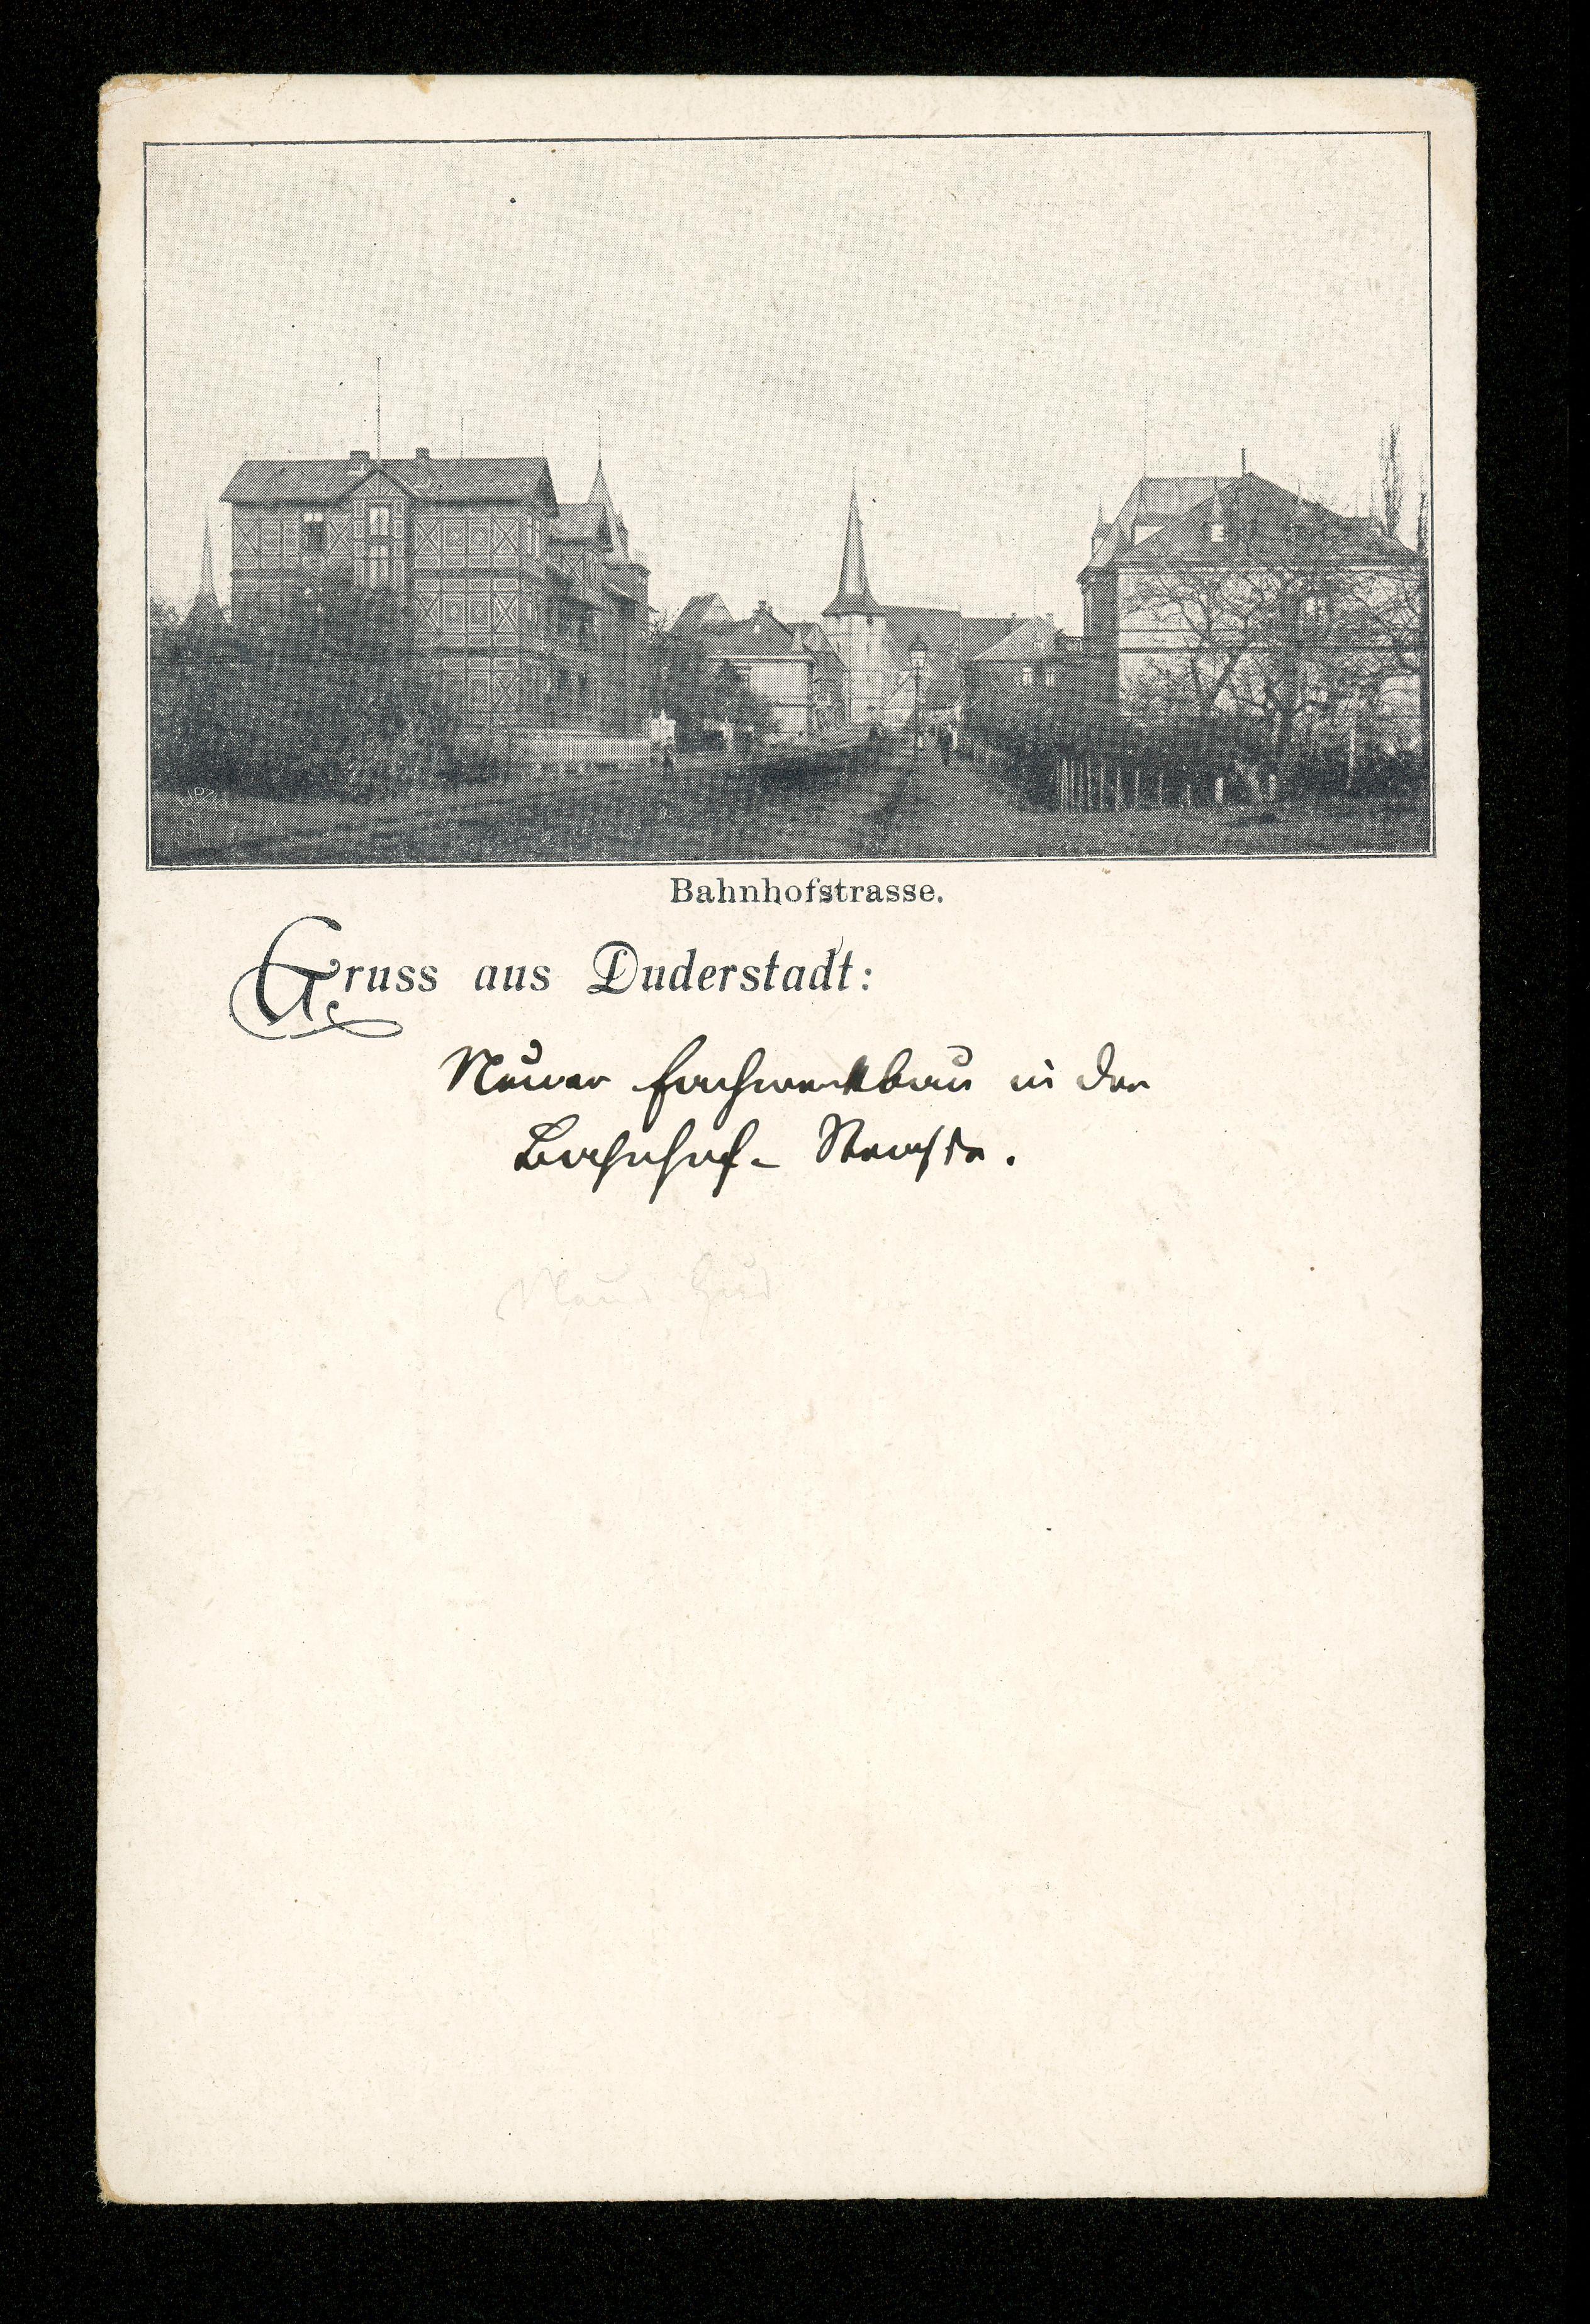 Bahnhofstrasse.
Gruss aus Duderstadt:
Neuer Fachwerkbau in der
Bahnhof- Strasse.